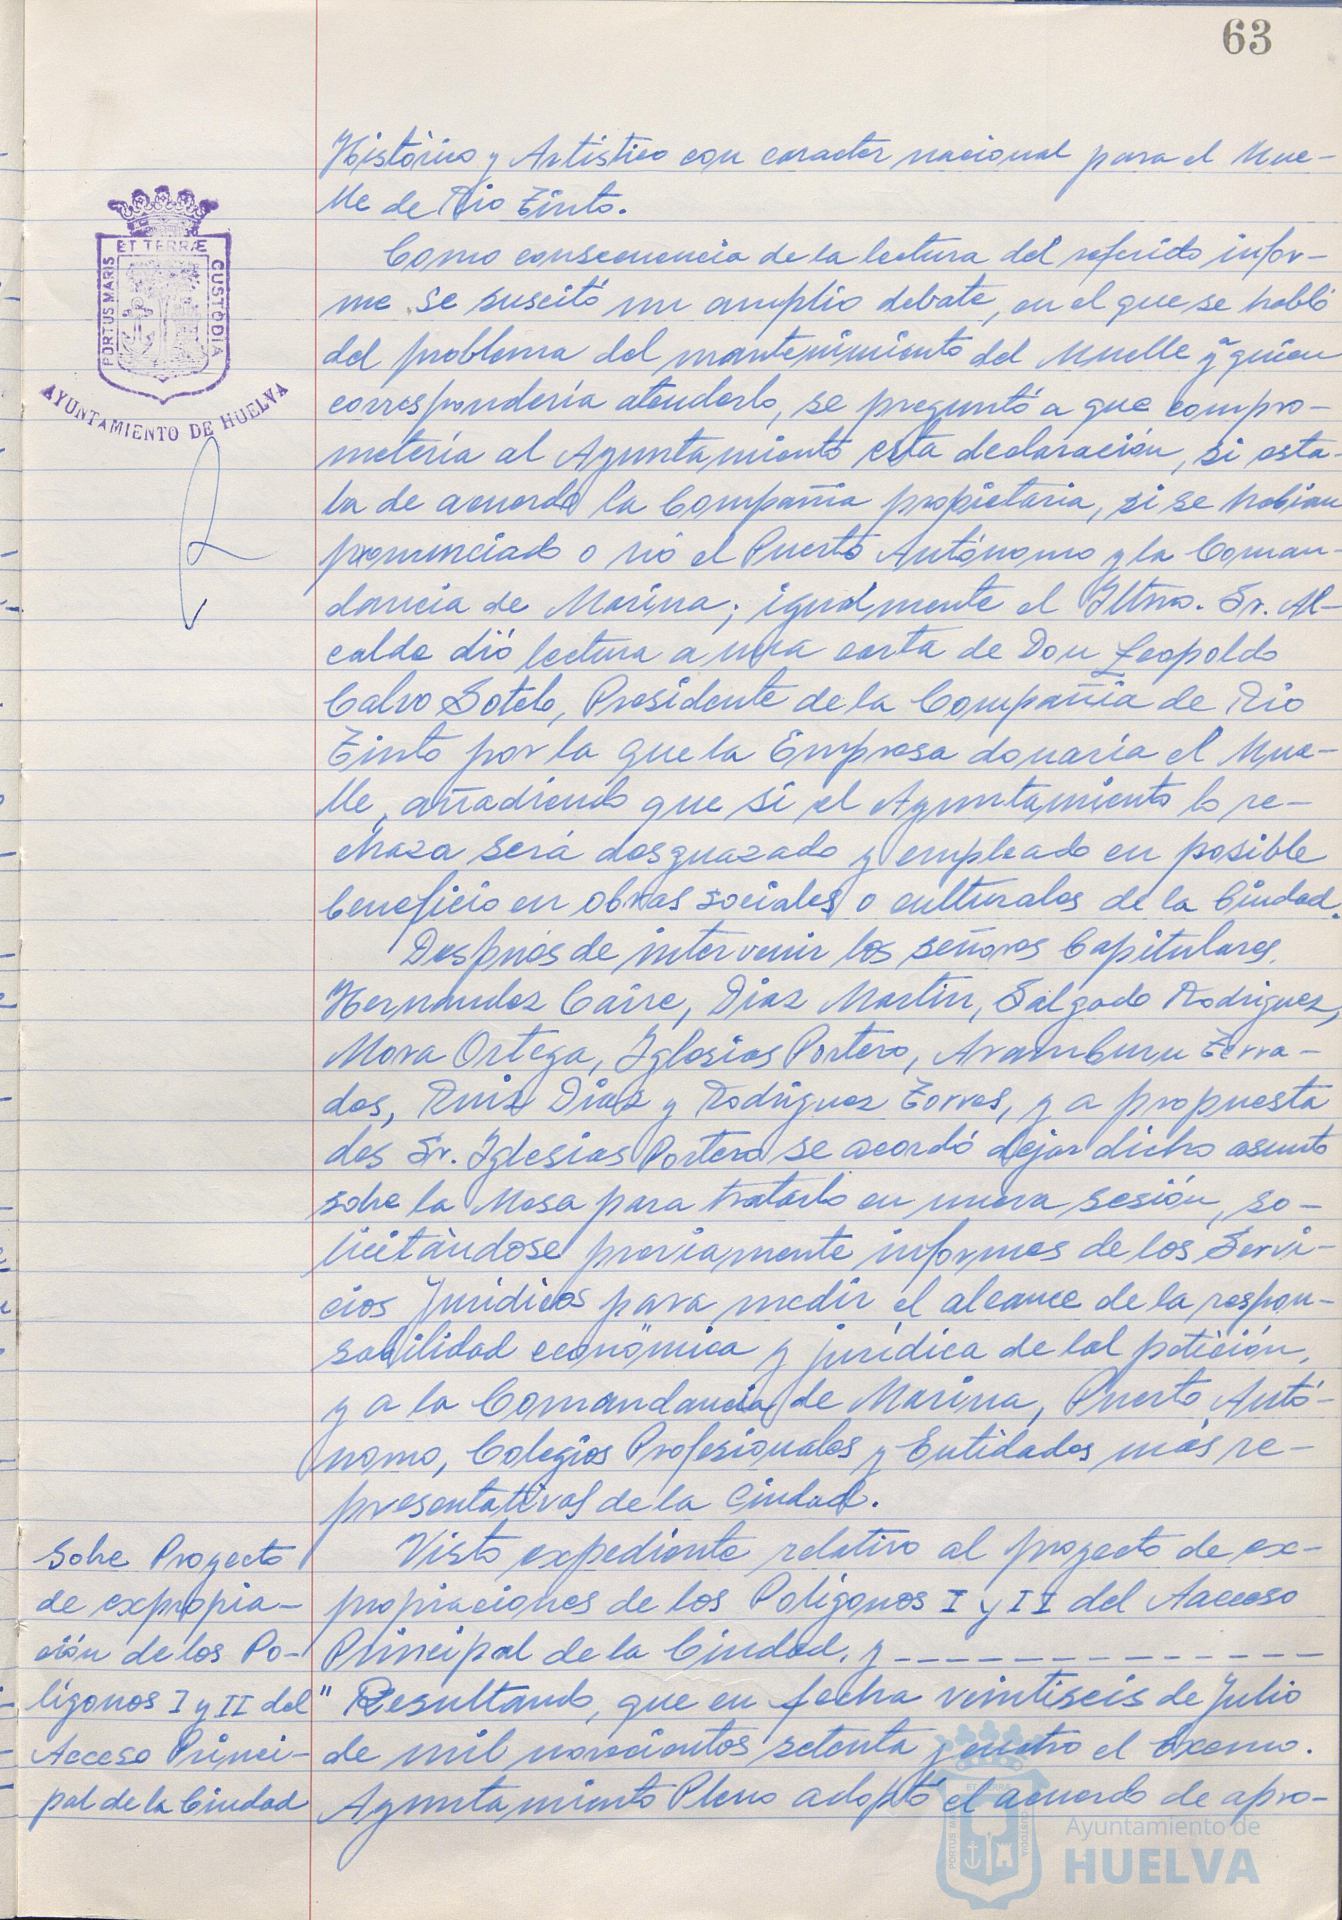 63
Histórico y Artístico con caracter nacional para el Mue-
lle de Rio Tinto.
Como consecuencia de la lectura del referido infor-
me se suscitó un amplio debate, en el que se habló
del problema del mantenimiento del Muelle y quien
correspondería atenderlo, se preguntó a que compro-
metería al Ayuntamiento esta declaración, si esta-
ba de acuerdo la Compañia propietaria, si se habian
pronunciado o nó el Puerto Autónomo y la Coman-
dancia de Marina; igualmente el Iltmo. Sr. Al-
calde dió lectura a una carta de Don Leopoldo
Calvo Sotelo, Presidente de la Compañía de Rio
Tinto por la que la Empresa donaría el Mue-
lle, añadiendo que si el Ayuntamiento lo re-
chaza será desguazado y empleado en posible
beneficio en obras sociales o culturales de la Ciudad.
Después de intervenir los señores Capitulares,
Hernandez Caire, Diaz Martin, Salgado Rodriguez,
Mora Ortega, Iglesias Portero, Aramburu Terra-
des, Ruiz Diaz y Rodriguez Torres, y a propuesta
des Sr. Iglesias Portero se acordó dejar dicho asunto
sobre la Mesa para tratarlo en nueva sesión, so-
licitándose previamente informes de los Servi-
cios Jurídicos para medir el alcance de la respon-
sabilidad económica y jurídica de tal petición,
y a la Comandancia de Marina, Puerto Autó-
nomo, Colegios Profesionales y Entidades más re-
presentativas de la Ciudad.
Visto expediente relativo al proyecto de ex-
propiaciones de los Polígonos I y II del Aacceso
Principal de la Ciudad, y -------------
"Resultando, que en fecha veintiseis de Julio
de mil novecientos setenta y cuatro el Excmo.
Ayuntamiento Pleno adoptó el acuerdo de apro-
Sobre Proyecto
de expropia-
ción de los Po-
lígonos I y II del
Acceso Princi-
pal de la Ciudad
PORTUS MARIS ET TERRÆ CUSTODIA
AYUNTAMIENTO DE HUELVA
PORTUS MARIS ET TERRÆ CUSTODIA
Ayuntamiento de
HUELVA